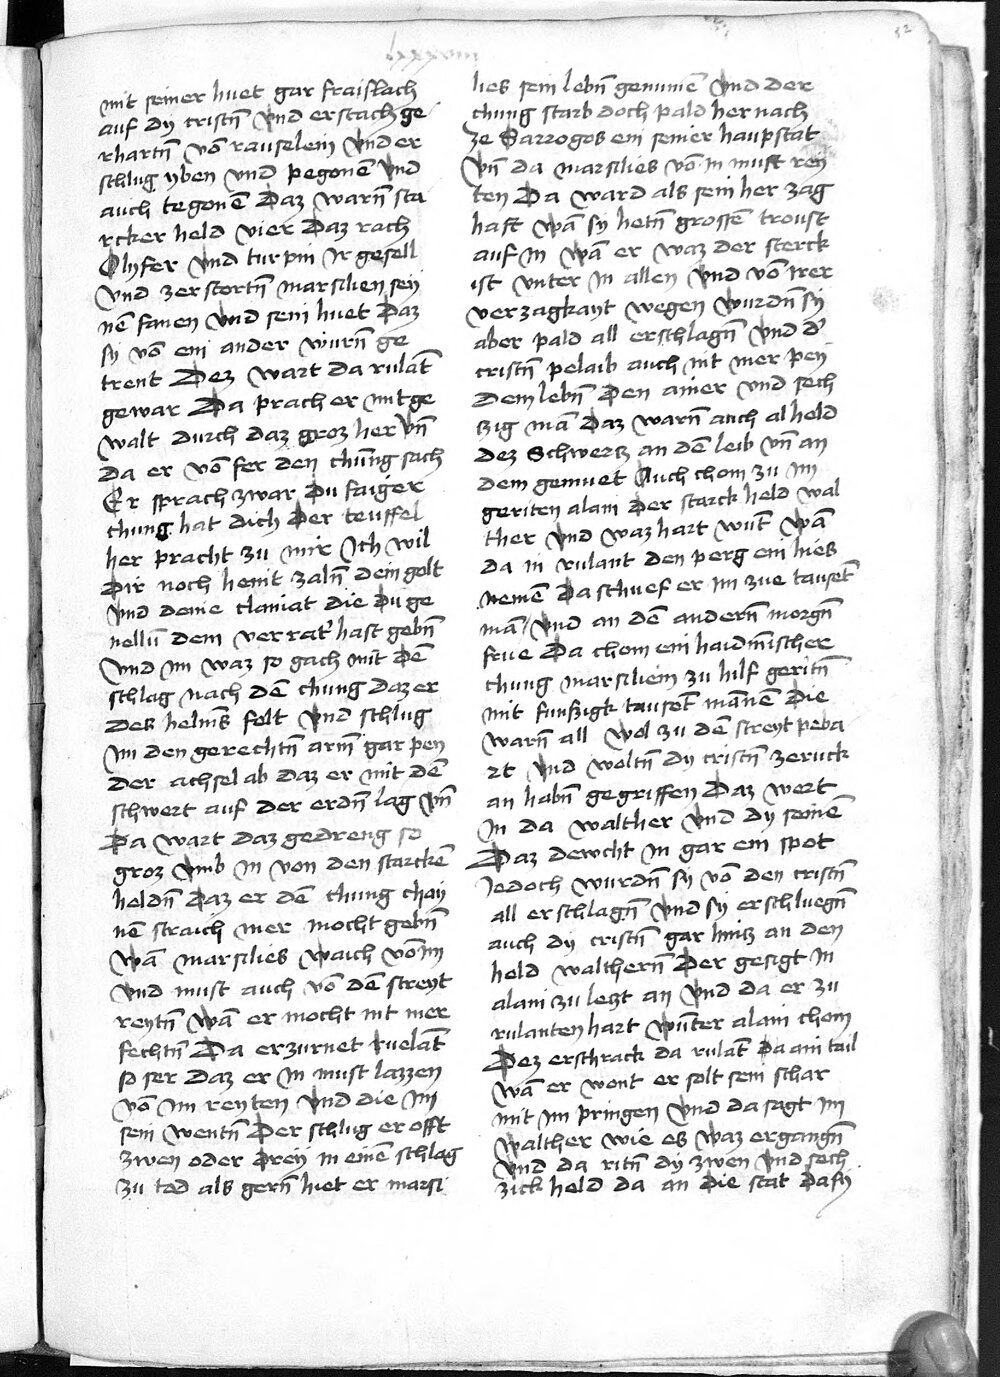 32
mit seiner huet gar fraislach
auf dy cristn̄ vnd erstach ge
rhartn̄ vō rauselein vnd er
schlug yben vnd pegonē vnd
auch tegonē Daz warn̄ sta
rcker held vier Daz rach
Olyfer vnd turpin Ir gesell
vnd zerstortn̄ marsilien sey
nē fanen vnd sein huet Daz
sy vō ein ander wurn̄ ge
trent Dez wart da rulāt
gewar Da prach er mit ge
walt durch daz groz her vn̄
da er vō fer den chūng sach
Er sprach zwar Du faiger
chung hat dich Der teuffel
her pracht zu mir Ich wil
Dir noch heint zaln̄ dein golt
vnd deine clainat die Du ge
nellū dem verrat̄ hast gebn̄
vnd im waz so gach mit Dē
schlag nach dē chung daz er
Des helms̄ felt vnd schlug
Im den gerechtn̄ arm̄ gar pen
der achsel ab daz er mit dē
schwert auf der erdn̄ lag vn̄
Da wart daz gedreng so
groz vmb in von den starckē
heldn̄ Daz er dē chung chay
nē straich mer mocht gebn̄
wā marsilies waich vō im
vnd must auch vō dē streyt
reytn̄ wā er mocht nit mer
fechtn̄ Da erzurnet ruelāt
so ser daz er in must lazzen
vō im reyten vnd die im
sein wentn̄ Der schlug er offt
zwen oder Drey in einē schlag
zu tod als gern̄ hiet er marsi
lies sein lebn̄ genumē vnd der
chung starb doch pald her nach
ze Sarrogos ein seiner haupstat
vn̄ da marsilies vō in must rey
ten Da ward als sein her zag
haft wā sy hetn̄ grossē troust
auf in wā er waz der sterck
ist vnter in allen vnd vō irer
verzagkayt wegen wurdn̄ sy
aber pald all erschlagn̄ vnd d'
cristn̄ pelaib auch nit mer pey
Dem lebn̄ Den ainer vnd sech
zig mā Daz warn̄ auch al held
dez Schwertz an dē leib vn̄ an
dem gemuet Auch chom zu im
geriten alain Der starck held wal
ther vnd waz hart wūt wā
da in rulant den perg ein hies
nemē Da schuef er im zue tausēt
mā vnd an dē andern̄ morgn̄
frue Da chom ein haidm̄ischer
chung marsiliem zu hilf geritn̄
mit funfzigk tausēt mānē Die
warn̄ all wol zu dē streyt peba
rt vnd woltn̄ dy cristn̄ zeruck
an habn̄ gegriffen Daz wert
in da walther vnd dy seinē
Daz dewcht in gar ein spot
Iedoch wurdn̄ sy vō den cristn̄
all erschlagn̄ vnd sy erschluegn̄
auch dy cristn̄ gar hintz an den
held walthern̄ Der gesigt in
alain zu letzt an vnd da er zu
rulanten hart wūnter alain chom
Dez erschrack da rulāt Da ain tail
wā er wont er solt sein schar
mit im pringen vnd da sagt im
walther wie es waz ergangn̄
vnd da ritn̄ dy zwen vnd sech
zick held da an die stat Da sy